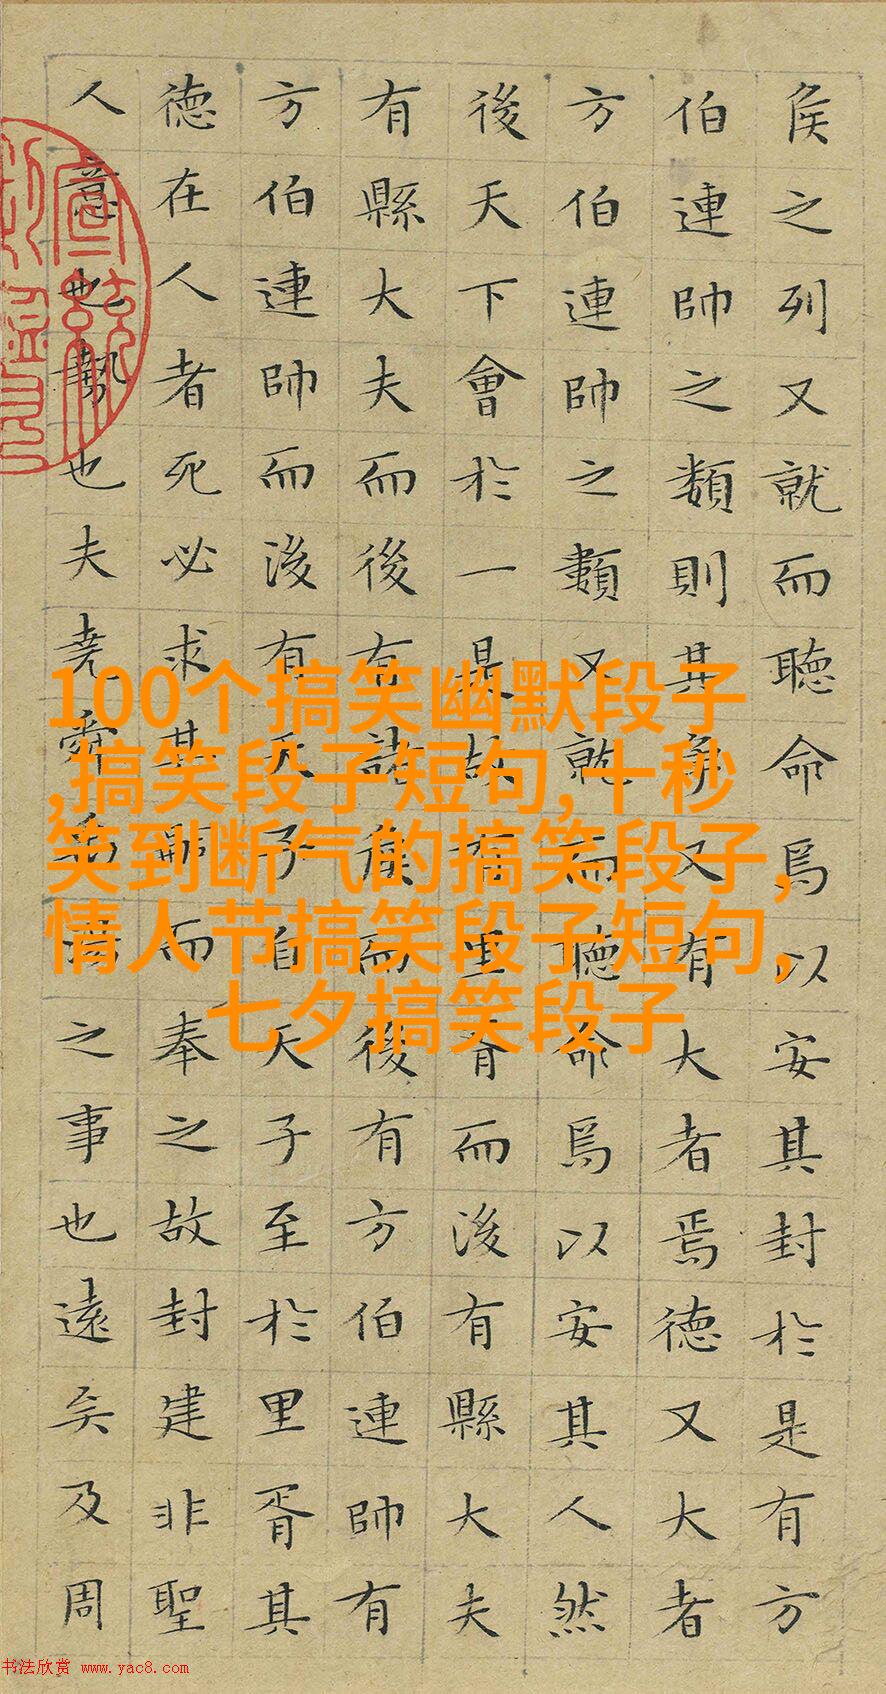 侯之列又就而聽命焉以安其封於是有方
伯連帥之類則其爭又有大者焉德又大者
方伯連帥之類又就而聽命焉以安其人然
後天下會於一是故有里胥而後有縣大夫
有縣大夫而後有諸侯而後有方伯連帥有
方伯連帥而後有天子自天子至於里胥其
德在人者死必求其嗣而奉之故封建非聖
人意也勢也夫堯舜禹湯之事也遠矣及周
100个搞笑幽默段子
,搞笑段子短句,十秒
笑到断气的搞笑段子,
情人节搞笑段子短句,
七夕搞笑段子
书法欣赏 www.yac8.com